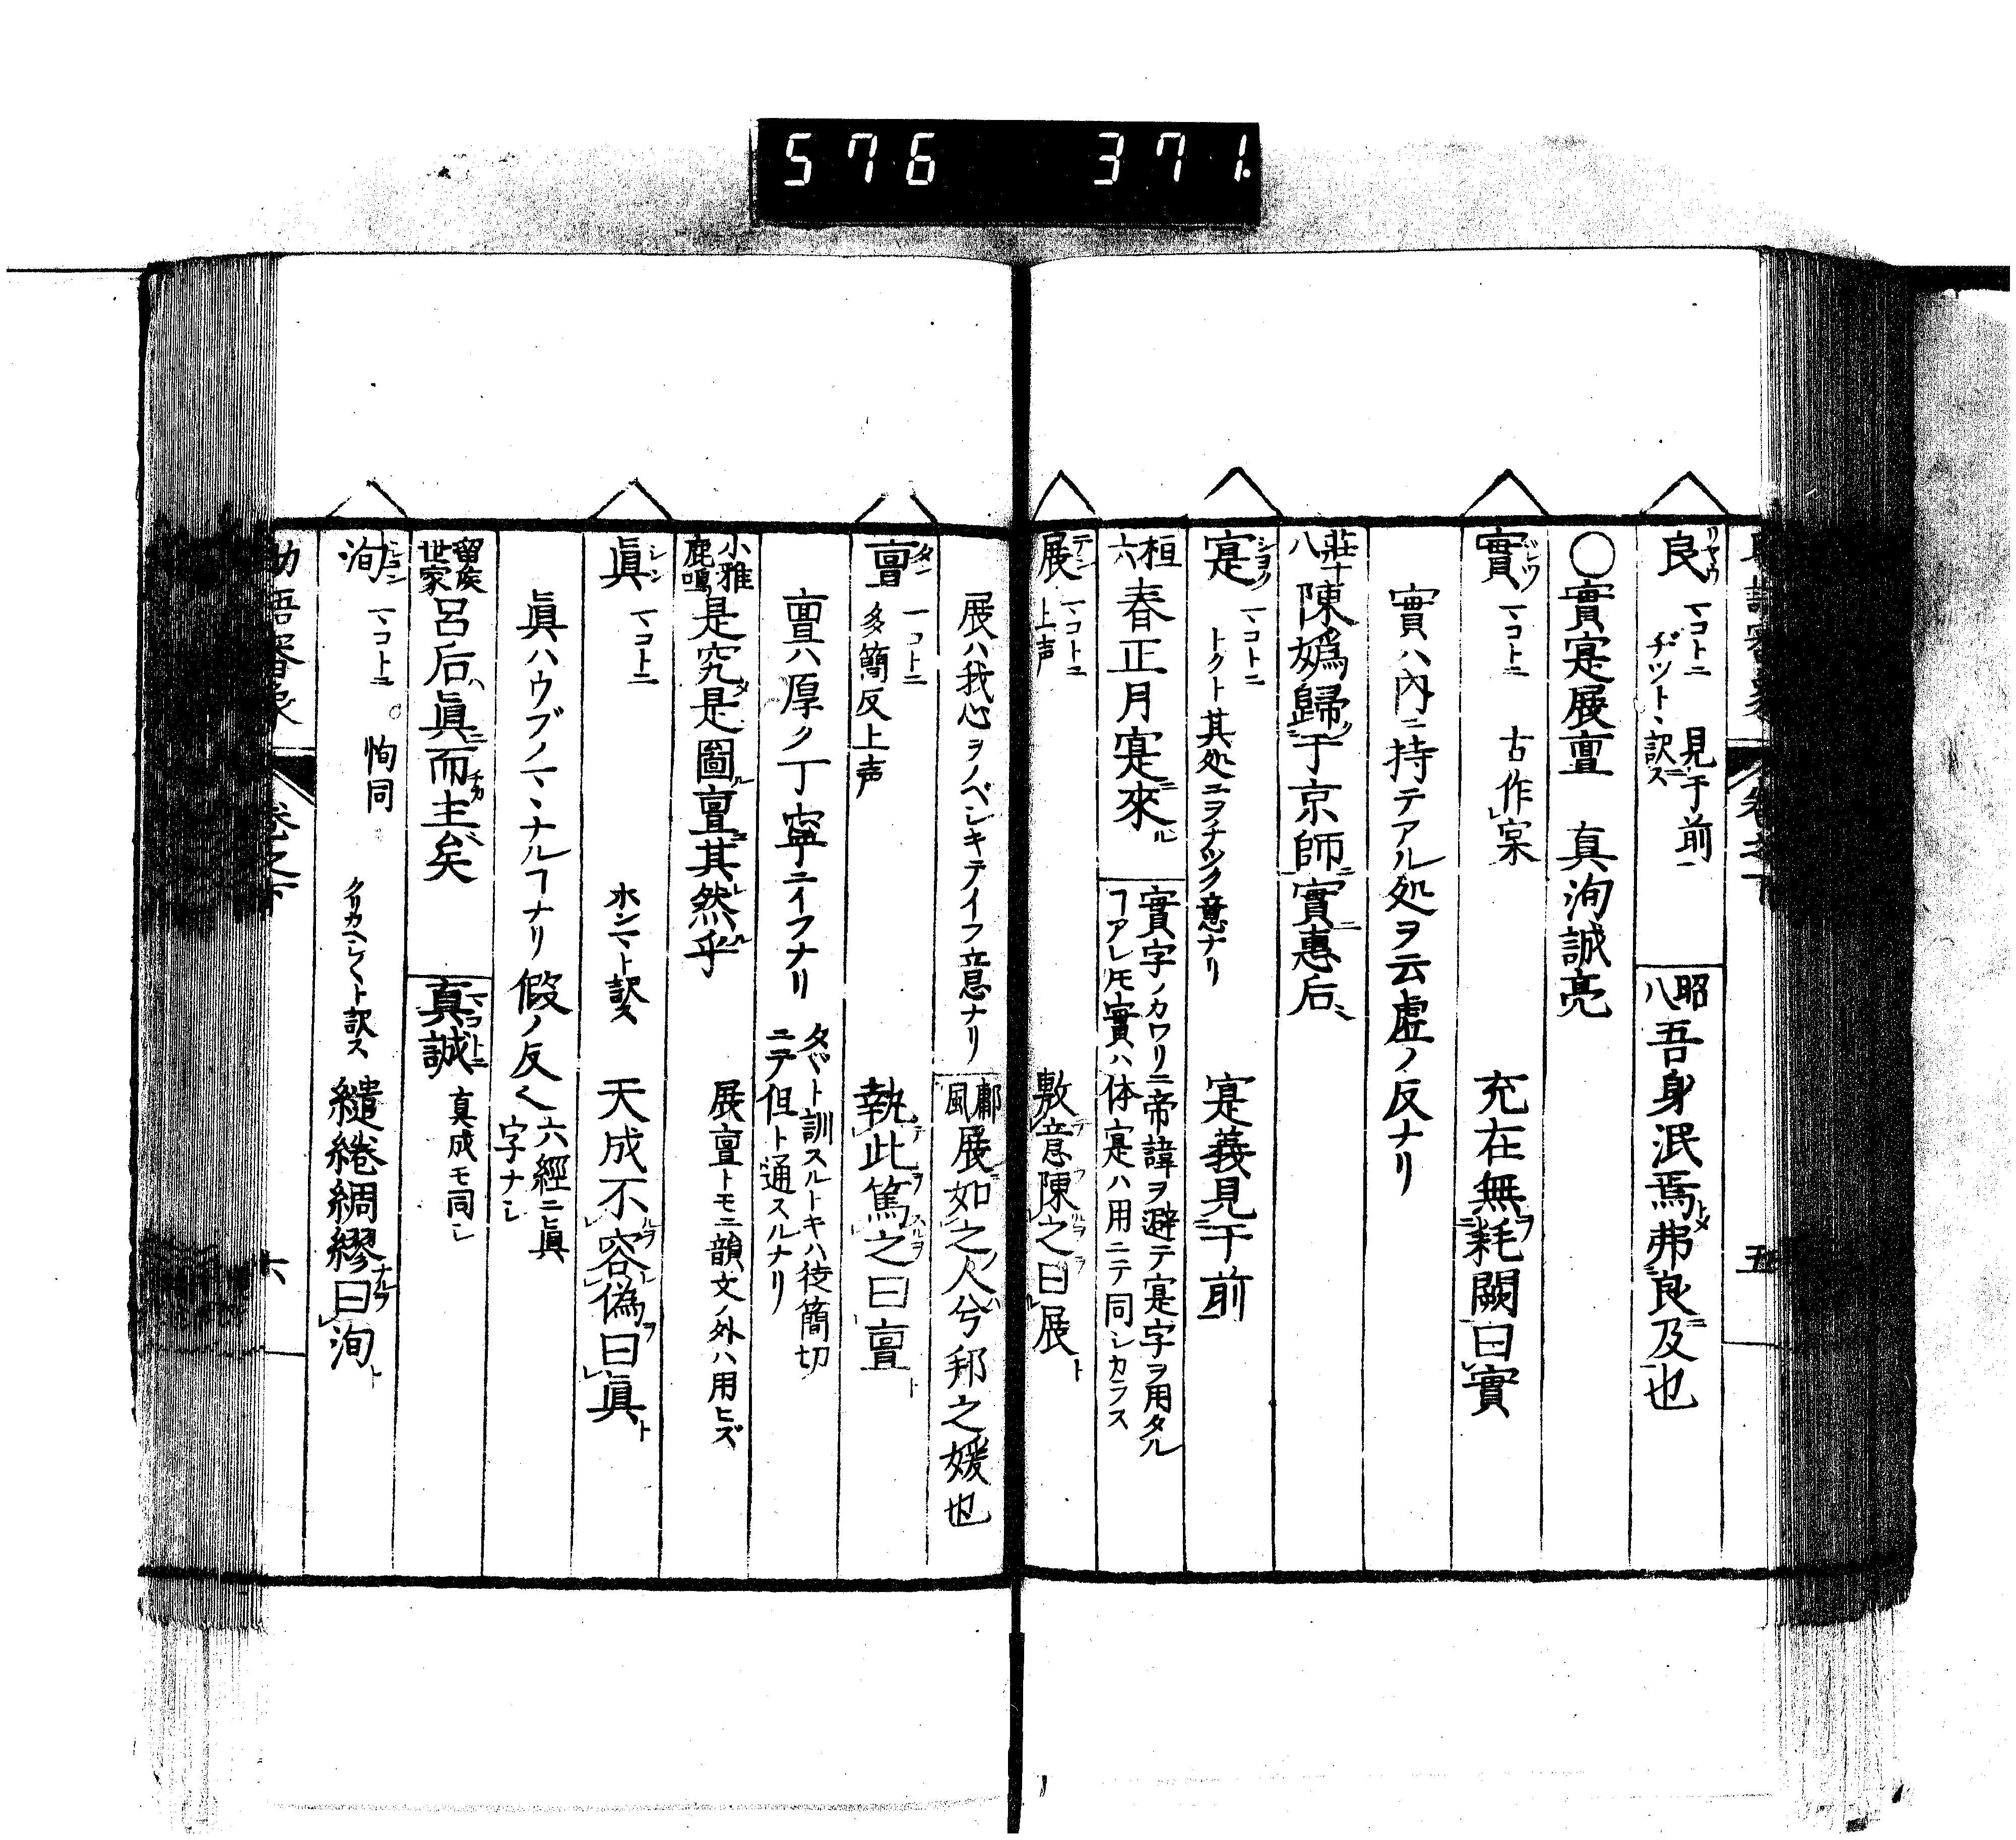 576 371.
五
良 リヤウ マコトニ ヂツトヽ訳ス 見于前 昭八 吾身泯焉弗良及也
〇實寔展亶 真洵誠亮
實 ジツ マコトニ 古作宲 充在無耗闕曰實
實ハ內ニ持テアル処ヲ云虚ノ反ナリ
莊十八 陳嬀歸于京師實惠后
寔 シヨク マコトニ トクト其処エヲチツク意ナリ 寔義見于前
桓六 春正月寔來 實字ノカワリニ帝諱ヲ避テ寔字ヲ用タルヿアレ𪜈實ハ体寔ハ用ニテ同シカラス
展 テン マコトニ 上声 敷意陳之曰展
展ハ我心ヲノベシキテイフ意ナリ 鄘風 展如之人兮邦之媛也
亶 タン マコトニ 多簡反上声 執此篤之曰亶
亶ハ厚ク丁寧ニイフナリ タヾト訓スルトキハ徒簡切ニテ但ト通スルナリ
小雅鹿鳴 是究是圖亶其然乎 展亶トモニ韻文ノ外ハ用ヒズ
眞 シン マコトニ ホンマト訳ス 天成不容偽曰眞
眞ハウブノマヽナルヿナリ假ノ反く 六經ニ眞字ナシ
留侯世家 呂后眞而主矣 真誠 マコトニ 真成モ同シ
洵 マコトニ 恂同 クリカヘシ〱ト訳ス 繾綣綢繆曰洵
六